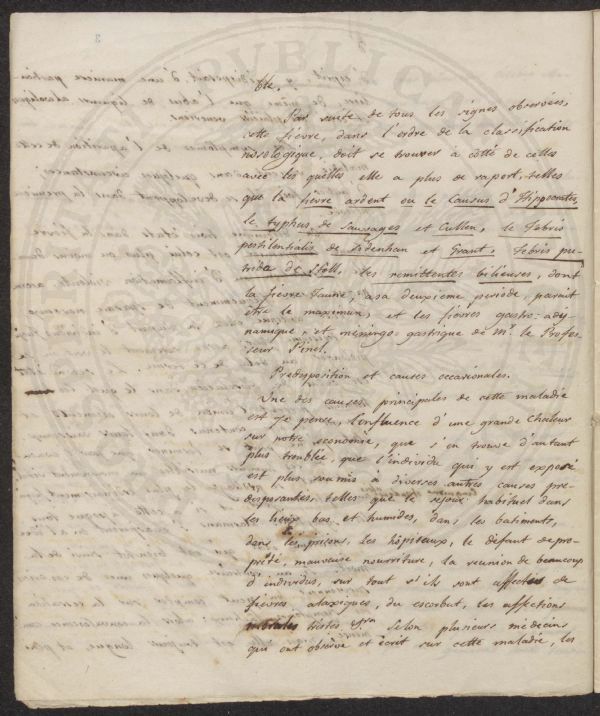 ble,
Par suite de tous les signes observées,
cette fièvre, dans l'ordre de la classification
nosologique, doit se trouver à côtté de celles
avec les quelles elle a plus de raport, telles
que la fièvre ardent ou le Causus d'Hippocrates,
le typhus de Sauvages et Cullen, le Febris
pestilentialis de Sidenhan et Grant, Febris pu-
trida de Stoll, les remittentes bilieuses, dont
la fievre Jaune, a sa deuxieme période, parait
etre le maximun, et les fièvres gastro-ady-
namique, et miningo-gastrique de Mr. le Profes-
seur Pinel.
Predisposition et causes occasionales.
Une des causes principales de cette maladie
est je pense, l'influence d'une grande chaleur
sur notre economie, que s'en trouve d'autant
plus troublée, que l'individu qui y est exposé
est plus soumis a diverses autres causes pre-
desposantes, telles que le sejour habituel dans
les lieux bas et humides, dans les batiments,
dans les prisons, les hôpiteaux, le défaut de pro-
prété, mauvaise nourriture, la reunion de beaucoup
d'individus, sur tout s'ils sont affectés de
fièvres ataxiques, du escorbut, les affections
tristes Selon plusieurs médecins
qui ont observé et écrit sur cette maladie, les